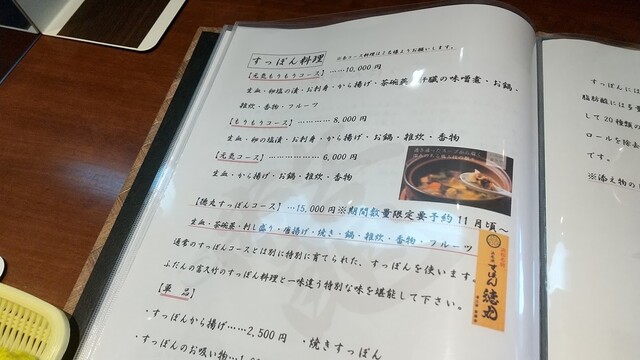 すっぽん料理 ※各コース料理は2名様よりお願いします。
【元気もりもりコース】……10,000円
生血・卵塩の漬・お刺身・から揚げ・茶碗蒸・肝臓の味噌煮・お鍋・
雑炊・香物・フルーツ
【もりもりコース】…………8,000円
生血・卵の塩漬・お刺身・から揚げ・お鍋・雑炊・香物
【元気コース】………………6,000円
生血・から揚げ・お鍋・雑炊・香物
【徳丸すっぽんコース】…15,000円※期間数量限定要予約11月頃~
生血・茶碗蒸・刺し盛り・唐揚げ・焼き・鍋・雑炊・香物・フルーツ
通常のすっぽんコースとは別に特別に育てられた、すっぽんを使います。
ふだんの宮大竹のすっぽん料理と一味違う特別な味を堪能して下さい。
【単品】
・すっぽんから揚げ……2,500円 ・焼きすっぽん
・すっぽんのお吸い物…
すっぽん
すっぽんには
脂肪酸には多
して20種類の
ロールを除去
です。
※添え物の